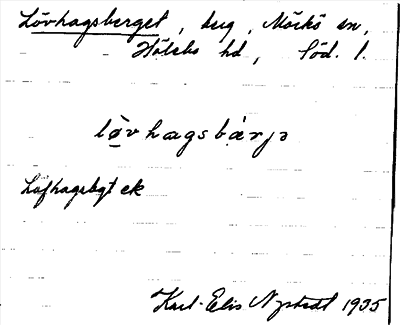 Lövhagsberget, bug, Mörkö sn,
Hölebo hd, Söd. l.
lö̀vhagsbärjə
Löfhagsbgt ek
Karl-Elis Nystedt 1935